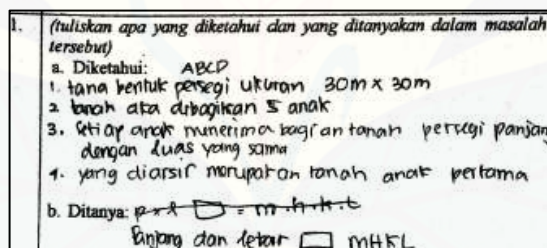 1. (tuliskan apa yang diketahui dan yang ditanyakan dalam masalah
tersebut)
a. Diketahui: ABCD
1. tana bentuk persegi ukuran 30m x 30m
2 tanah aka dibagikan 5 anak
3. Setiap anak munerima bagian tanah persegi panjan
dengan luas yang sama
4. yang diarsir merupakan tanah anak pertama
b. Ditanya:
Panjang dan lebar □ MHKL